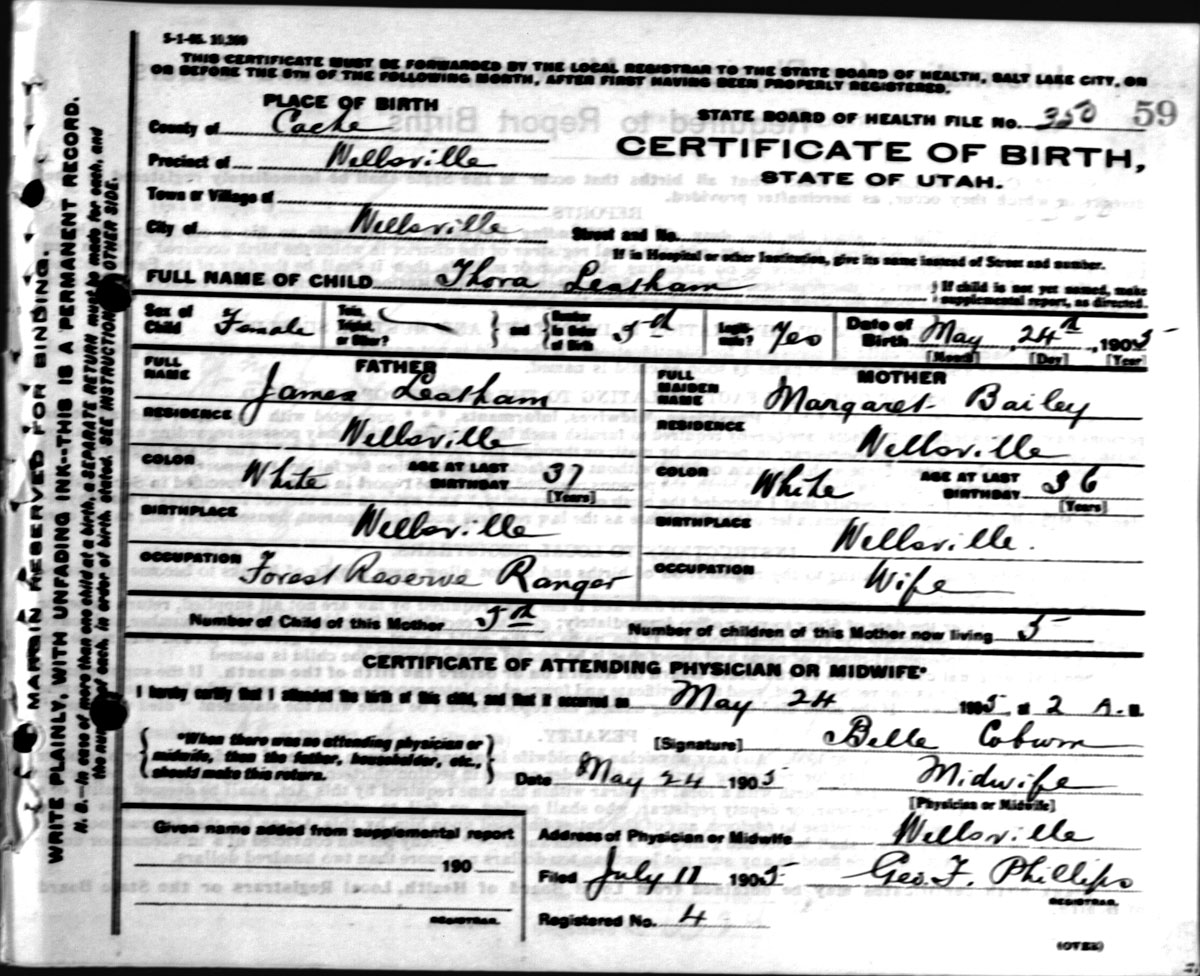 S-1-05. 10,200
THIS CERTIFICATE MUST BE FORWARDED BY THE LOCAL REGISTRAR TO THE STATE BOARD OF HEALTH, SALT LAKE CITY, ON
OR BEFORE THE 5TH OF THE FOLLOWING MONTH, AFTER FIRST HAVING BEEN PROPERLY REGISTERED.
PLACE OF BIRTH
County of Cache
Precinct of Wellsville
Town or Village of
City of Wellsville Street and No.
STATE BOARD OF HEALTH FILE No. 350 59
CERTIFICATE OF BIRTH,
STATE OF UTAH.
If in Hospital or other Institution, give its name instead of Street and number.
FULL NAME OF CHILD Thora Leatham { If child is not yet named, make supplemental report, as directed.
Sex of Child Female Twin, Triplet, or Other? } and { Number in Order of Birth 5th Legitimate? Yes Date of Birth May 24th, 1905
[Month] [Day] [Year]
FATHER
FULL NAME James Leatham
RESIDENCE Wellsville
COLOR White AGE AT LAST BIRTHDAY 37
[Years]
BIRTHPLACE Wellsville
OCCUPATION Forest Reserve Ranger
MOTHER
FULL MAIDEN NAME Margaret Bailey
RESIDENCE Wellsville
COLOR White AGE AT LAST BIRTHDAY 36
[Years]
BIRTHPLACE Wellsville.
OCCUPATION Wife
Number of Child of this Mother 5th Number of children of this Mother now living 5
CERTIFICATE OF ATTENDING PHYSICIAN OR MIDWIFE*
I hereby certify that I attended the birth of this child, and that it occurred on May 24 1905, at 2 A. M.
{ *When there was no attending physician or
midwife, then the father, householder, etc.,
should make this return. }
[Signature] Belle Coburn
Date May 24 1905 Midwife
[Physician or Midwife]
Given name added from supplemental report
190
REGISTRAR.
Address of Physician or Midwife Wellsville
Filed July 11 1905 Geo. F. Phillips
REGISTRAR.
Registered No. 4
(OVER)
MARGIN RESERVED FOR BINDING.
WRITE PLAINLY, WITH UNFADING INK--THIS IS A PERMANENT RECORD.
N. B.--In case of more than one child at a birth, a SEPARATE RETURN must be made for each, and
the number of each, in order of birth, stated. SEE INSTRUCTIONS OTHER SIDE.